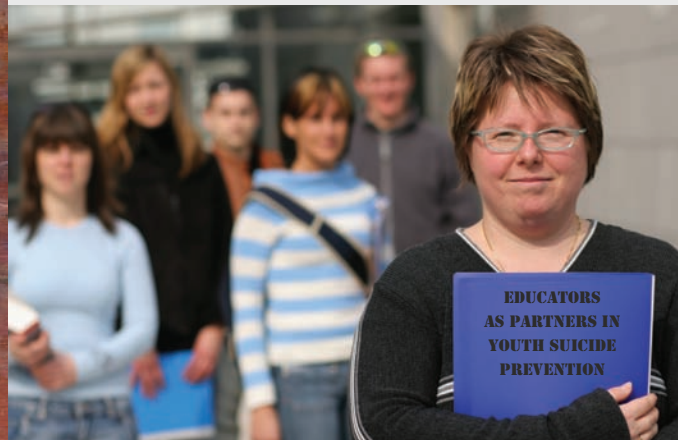 EDUCATORS
AS PARTNERS IN
YOUTH SUICIDE
PREVENTION